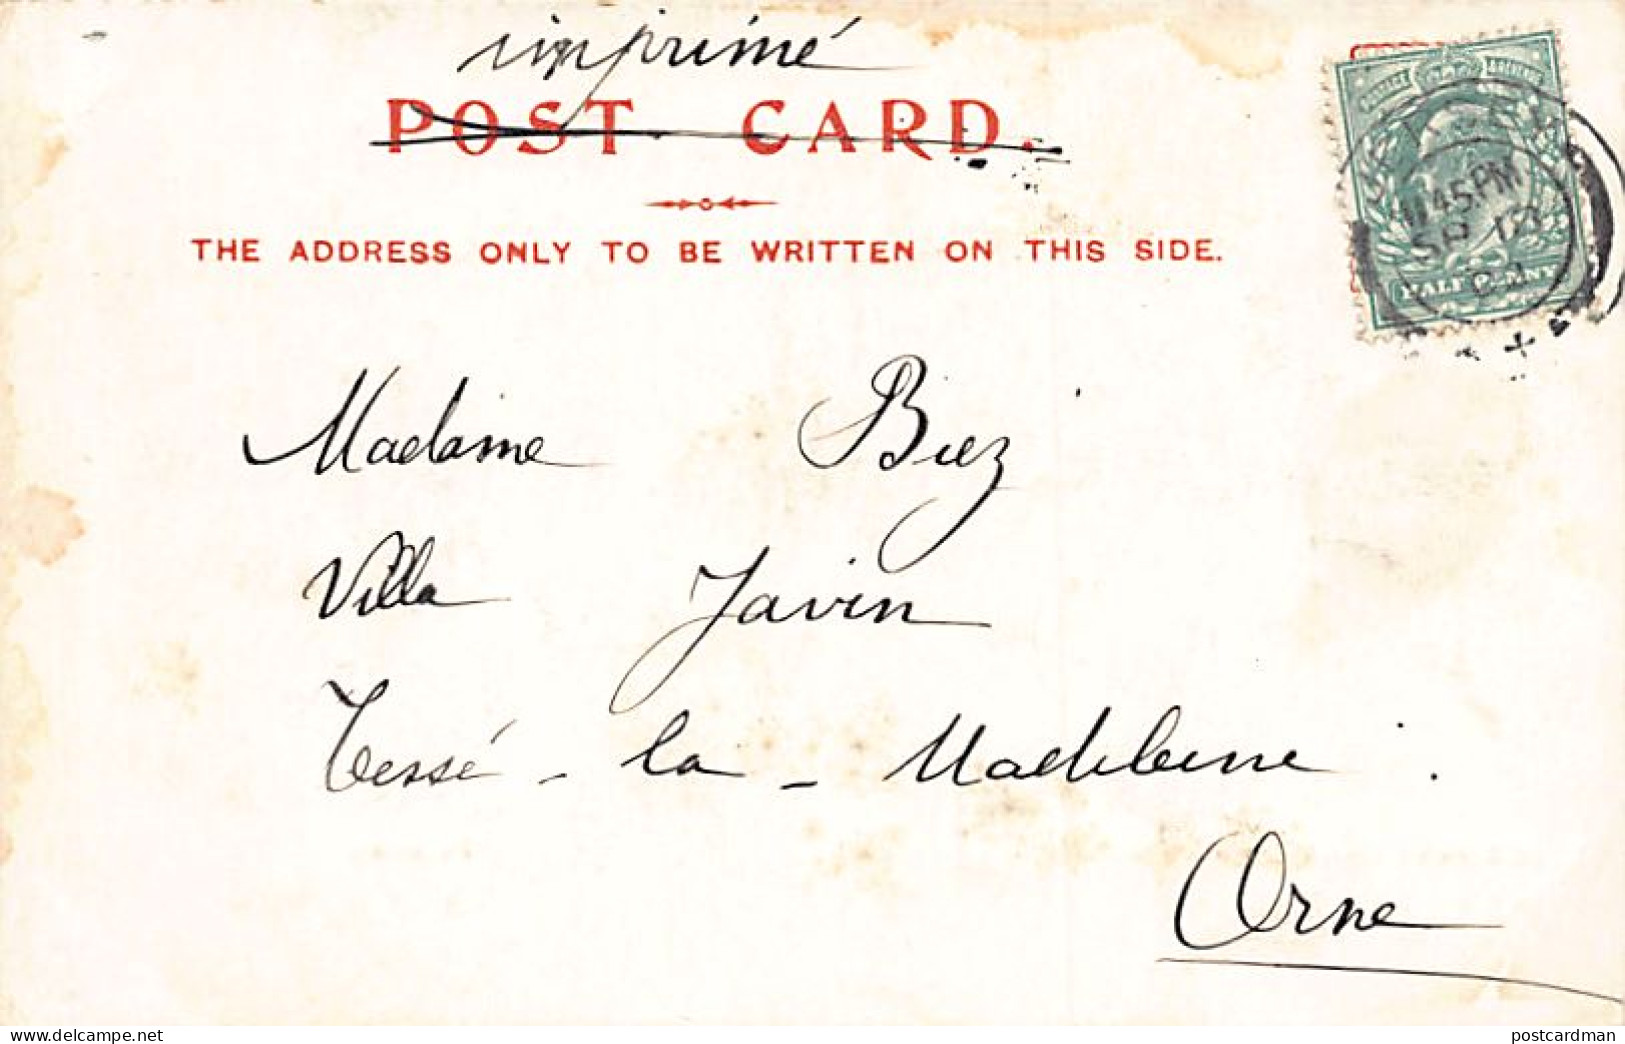 imprimé
POST CARD.
THE ADDRESS ONLY TO BE WRITTEN ON THIS SIDE.
POSTAGE & REVENUE
45 PM
SP 18
04
HALF PENNY
Madame Biez
Villa Javin
Tessé - la - Madeleine.
Orne
www.delcampe.net
postcardman